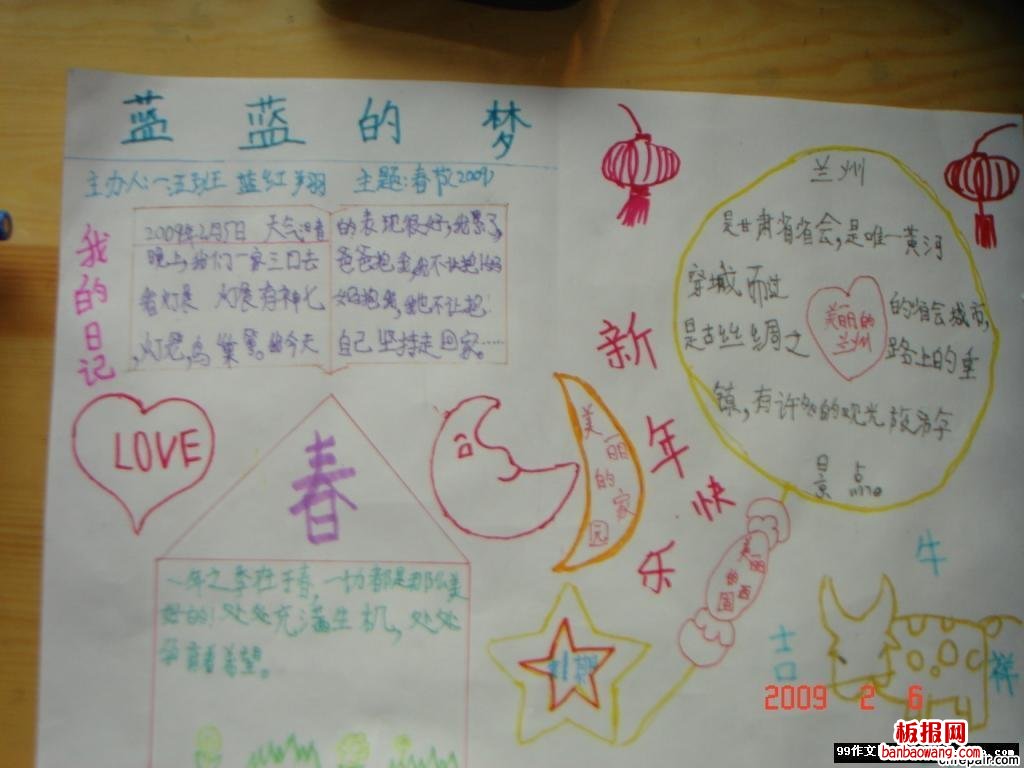 蓝蓝的梦
主办人:一.五班 蓝红羽 主题:春节2009
我的日记
2009年2月5日 天气晴
晚上,我们一家三口去
看灯展 灯展有神七
,灯笼,鸟巢
今天
的表现很好,我累了,
爸爸抱我,我不让抱!妈
妈抱我,我也不让抱!
自己坚持走回家……
LOVE
春
一年之季在于春,一切都是那么美
好的!处处充满生机,处处
孕育着希望。
美丽的家园
新年快乐
兰州
是甘肃省省会,是唯一黄河
穿城而过
的省会城市,
是古丝丝绸之
路上的重
镇,有许多的观光旅游
景点。
美丽的
兰州
美丽
牛
吉
祥
2009 2 6
板报网
banbaowang.com
99作文
cnrepair.com